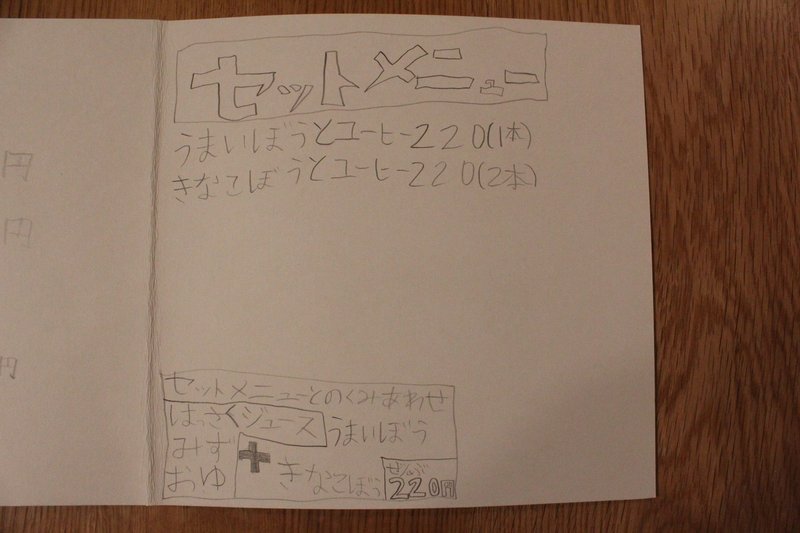 円
円
円
セットメニュー
うまいぼうとコーヒー220(1本)
きなこぼうとコーヒー220(2本)
セットメニューとのくみあわせ
はっさくジュース
みず
おゆ
+
うまいぼう
きなこぼう
ぜんぶ
220円